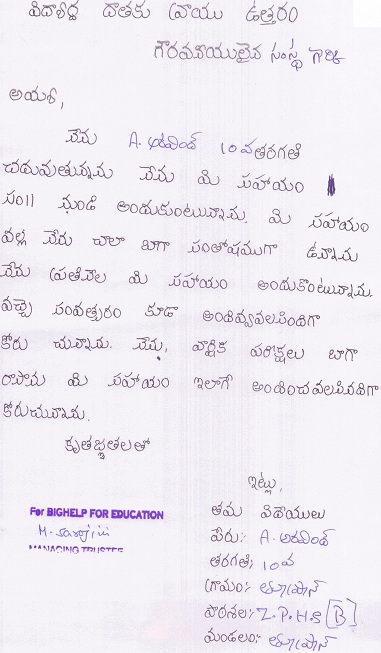 విద్యార్థి దాతకు వ్రాయు ఉత్తరం
గౌరవనీయులైన సంస్థ గారికి
అయ్యా,
నేను A. అరవింద్ 10వ తరగతి
చదువుతున్నాను నేను మీ సహాయం
సం॥ నుండి అందుకుంటున్నాను. మీ సహాయం
వల్ల నేను చాలా బాగా సంతోషముగా ఉన్నాను
నేను ప్రతినెల మీ సహాయం అందుకొంటున్నాను.
వచ్చే సంవత్సరం కూడా అందివ్వవలసిందిగా
కోరు చున్నాను. నేను, వార్షిక పరీక్షలు బాగా
రాసాను మీ సహాయం ఇలాగే అందించవలసినదిగా
కోరుచున్నాను.
కృతజ్ఞతలతో
ఇట్లు,
తమ విధేయులు
For BIGHELP FOR EDUCATION
పేరు:- A. అరవింద్
MANAGING TRUSTEE
తరగతి: 10వ
గ్రామం:- తూప్రాన్
పాఠశాల:- Z.P.H.S (B)
మండలం:- తూప్రాన్